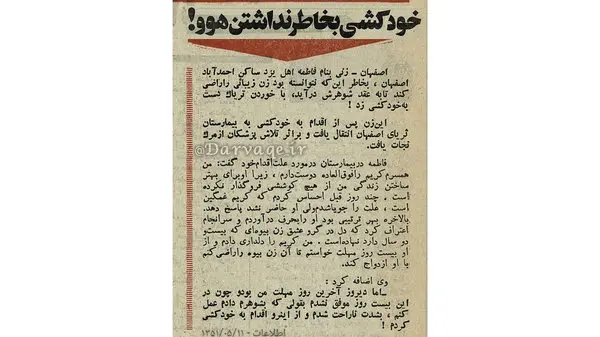 خودکشی بخاطر نداشتن هوو!
اصفهان - زنی بنام فاطمه اهل یزد ساکن احمدآباد
اصفهان ، بخاطر این‌که نتوانسته بود زن زیبائی راراضی
کند تابه عقد شوهرش درآید، با خوردن تریاک دست
به‌خودکشی زد !
این‌زن پس از اقدام به خودکشی به بیمارستان
ثریای اصفهان انتقال یافت و براثر تلاش پزشکان ازمرگ
نجات یافت.
@Darvage.ir
فاطمه دربیمارستان درمورد علت‌اقدام‌خود گفت: من
همسرم‌کریم رافوق‌العاده دوست‌دارم ، زیرا اوبرای بهتر
ساختن زندگی من از هیچ کوششی فروگذار نکرده
است . چند روز قبل احساس کردم که کریم غمگین
است . علت را جویاشدم‌ولی او حاضر نشد پاسخ دهد.
بالاخره بهر ترتیبی بود او رابحرف درآوردم و سرانجام
اعتراف کرد که دل در گرو عشق زن بیوه‌ای که بیست‌و
دو سال دارد نهاده‌است . من کریم را دلداری دادم و از
او بیست روز مهلت خواستم تا آن زن بیوه راراضی‌کنم
با او ازدواج کند.
وی اضافه کرد :
-اما دیروز آخرین روز مهلت من بودو چون در
این بیست روز موفق نشدم بقولی که بشوهرم دادم عمل
کنم ، بشدت ناراحت شدم و از اینرو اقدام به خودکشی
کردم !
اطلاعات - ۱۳۵۱/۰۵/۱۱